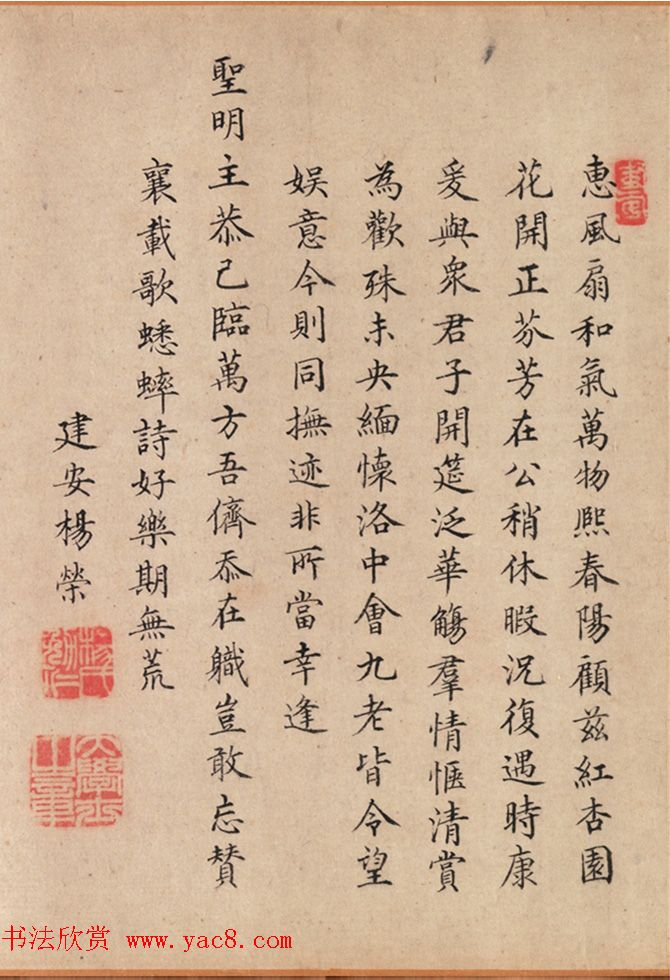 惠風扇和氣萬物熙春陽顧茲紅杏園
花開正芬芳在公稍休暇況復遇時康
爰與衆君子開筵泛華觴羣情愜清賞
為歡殊未央緬懷洛中會九老皆令望
娱意今則同撫迹非所當幸逢
聖明主恭己臨萬方吾儕忝在職豈敢忘賛
襄載歌蟋蟀詩好樂期無荒
建安楊榮
楊氏勉仁
大學士章
书法欣赏 www.yac8.com